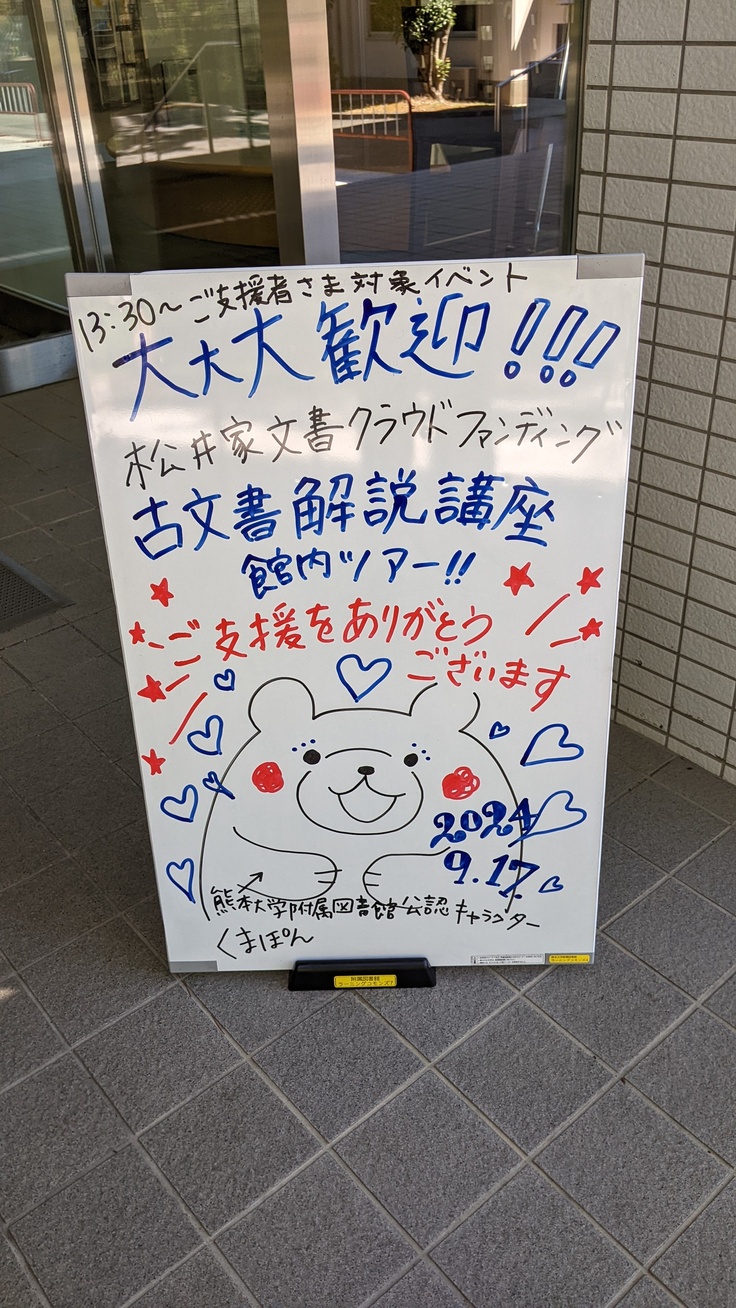 13:30~ご支援者さま対象イベント
大大大歓迎!!!
松井家文書クラウドファンディング
古文書解説講座
館内ツアー!!
ご支援をありがとう
ございます
2024
9.17
熊本大学附属図書館公認キャラクター
くまぽん
附属図書館
ラーニングコモンズ7